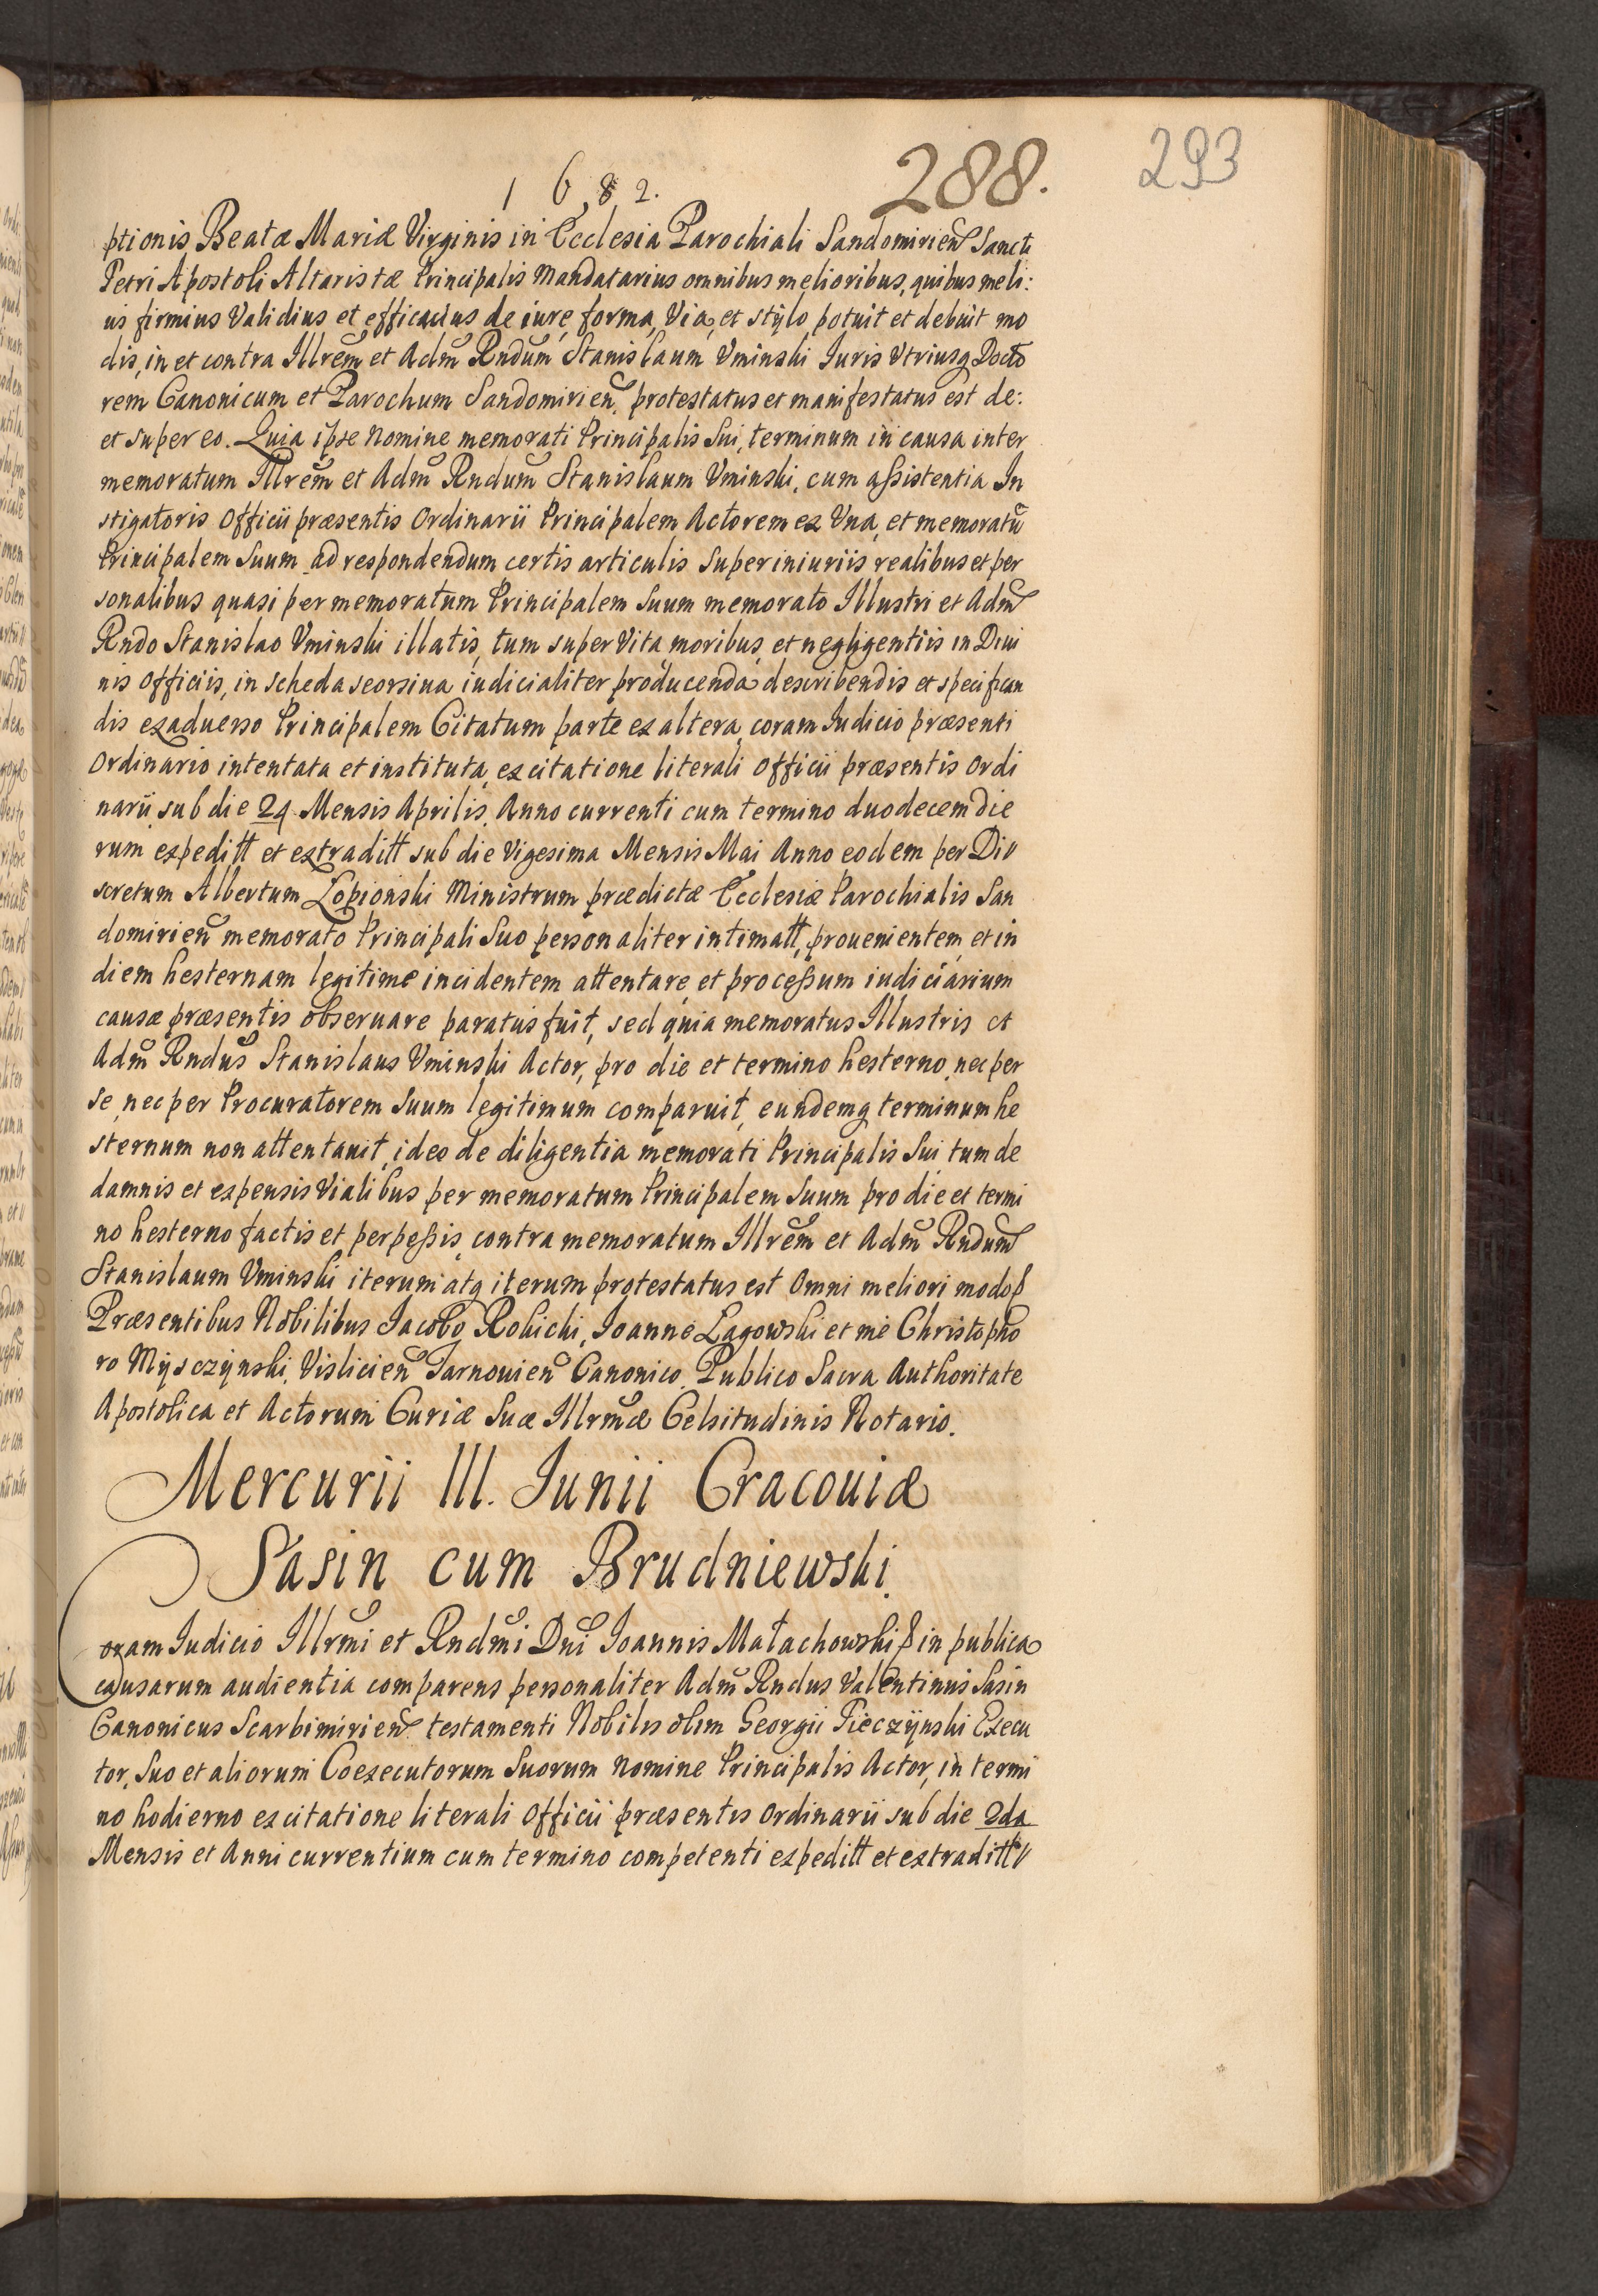 1682.
288.
293
ptionis Beatæ Mariæ Virginis in Ecclesia Parochiali Sandomirien Sancti
Petri Apostoli Altaristæ Principalis Mandatarius omnibus melioribus, quibus meli:
us firmius Validius et efficacius de iure, forma, Via, et stÿlo potuit et debuit mo
dis, in et contra Illrem et Adm Rndum Stanislaum Uminski Iuris Utriusq Docto
rem Canonicum et Parochum Sandomirien protestatus et manifestatus est de:
et super eo. Quia ipse Nomine memorati Principalis Sui, terminum in causa inter
memoratum Illrem et Adm Rndum Stanislaum Uminski, cum aßistentia In
stigatoris Officii præsentis Ordinarii Principalem Actorem ex Una, et memoratū
Principalem Suum ad respondendum certis articulis Super iniuriis realibus et per
sonalibus quasi per memoratum Principalem Suum memorato Illustri et Adm
Rndo Stanislao Uminski illatis, tum super Vita moribus, et negligentiis in Diui
nis Officiis, in scheda seorsiua iudicialiter producenda describendis et specifican
dis exaduerso Principalem Citatum parte ex altera, coram Iudicio præsenti
Ordinario intentata et instituta, ex citatione literali Officii præsentis Ordi
narii sub die 24 Mensis Aprilis, Anno currenti cum termino duodecem die
rum expeditt et extraditt sub die Vigesima Mensis Mai Anno eodem per Di
scretum Albertum Lopionski Ministrum prædictæ Ecclesiæ Parochialis San
domirien memorato Principali Suo personaliter intimatt, prouenientem, et in
diem hesternam legitime incidentem attentare, et proceßum iudiciarium
causæ præsentis obseruare paratus fuit, sed quia memoratus Illustris et
Adm Rndus Stanislaus Uminski Actor, pro die et termino hesterno, nec per
se, nec per Procuratorem Suum legitimum comparuit, eundemq terminum he
sternum non attentauit, ideo de diligentia memorati Principalis Sui tum de
damnis et expensis Vialibus per memoratum Principalem Suum pro die et termi
no hesterno factis et perpeßis, contra memoratum Illrem et Adm Rndum
Stanislaum Uminski iterum atq iterum protestatus est Omni meliori modo
Præsentibus Nobilibus Iacobo Rokicki, Ioanne Łagowski et me Christopho
ro Mÿsczÿnski, Vislicien Tarnouien Canonico, Publico Sacra Authoritate
Apostolica et Actorum Curiæ Suæ Illrmæ Celsitudinis Notario.
Mercurii III. Iunii Cracouiæ
Sasin cum Brudniewski.
Coram Iudicio Illrmi et Rndmi Dni Ioannis Małachowski in publica
causarum audientia comparens personaliter Adm Rndus Valentinus Sasin
Canonicus Scarbimirien testamenti Nobilis olim Georgii Pieczÿnski Execu
tor, Suo et aliorum Coexecutorum Suorum Nomine Principalis Actor, in termi
no hodierno ex citatione literali Officii præsentis Ordinarii sub die 2da
Mensis et Anni currentium cum termino competenti expeditt et extraditt